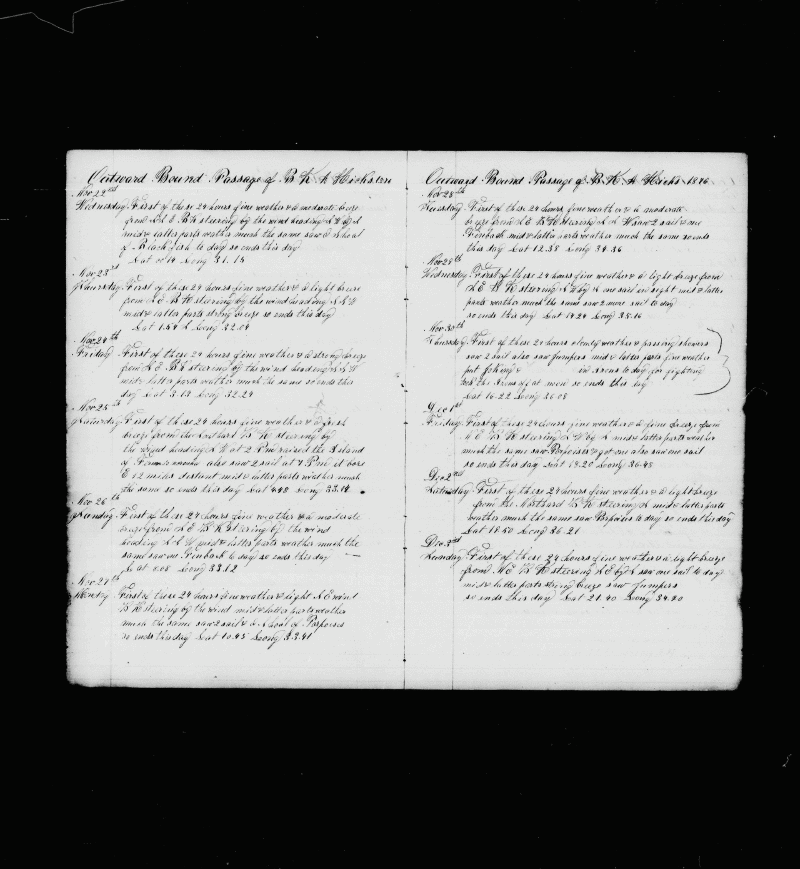 Outward Bound Passage of B K A Hicks 1876
Nov 22nd
Wednesday First of these 24 hours fine weather & a moderate breeze
from S E B K steering by the wind heading S W by S
mid & latter parts weather much the same saw a shoal
of Black fish to day so ends this day
Lat Long 31.18
Nov 23rd
Thursday First of these 24 hours fine weather & a light breeze
from S E B K steering by the wind heading S S W
mid & latter parts strong breeze so ends this day
Lat 1.54 Long 32.04
Nov 24th
Friday First of these 24 hours fine weather & a strong breeze
from S E B K steering by the wind heading S S W
mid & latter parts weather much the same so ends this
day Lat 3.13 Long 32.29
Nov 25th
Saturday First of these 24 hours fine weather & a fresh
breeze from the Southard B K steering by
the wind heading S W at 2 Pm raised the Island
of also saw 2 sail at 7 Pm it bore
E 12 miles distant mid & latter parts weather much
the same so ends this day Lat 4.48 Long 33.14
Nov 26th
Sunday First of these 24 hours fine weather & a moderate
breeze from S E B K steering by the wind
heading S S W mid & latter parts weather much the
same saw one Finback to day so ends this day
Lat Long 33.12
Nov 27th
Monday First of these 24 hours fine weather & light S E wind
B K steering by the wind mid & latter parts weather
much the same saw 2 sail & a shoal of Porpoises
so ends this day Lat 10.45 Long 33.41
Outward Bound Passage of B K A Hicks 1876
Nov 28th
Tuesday First of these 24 hours fine weather & a moderate
breeze from S E B K steering S S W saw 2 sail & one
Finback mid & latter parts weather much the same so ends
this day Lat 12.38 Long 34.36
Nov 29th
Wednesday First of these 24 hours fine weather & a light breeze from
S E B K steering S W by S one sail in sight mid & latter
parts weather much the same saw 2 more sail to day
so ends this day Lat 14.24 Long 35.16
Nov 30th
Thursday First of these 24 hours weather & passing showers
saw 2 sail also saw jumpers mid & latter parts fine weather
put & in irons to day for fighting
took the irons of at noon so ends this day
Lat 16.22 Long 36.08
Dec 1st
Friday First of these 24 hours fine weather & a fine breeze from
N E B K steering S W by S mid & latter parts weather
much the same saw Porpoises & got one also saw one sail
so ends this day Lat 19.20 Long 36.48
Dec 2nd
Saturday First of these 24 hours fine weather & a light breeze
from the Northard B K steering S mid & latter parts
weather much the same saw Porpoises to day so ends this day
Lat 18.50 Long 36.21
Dec 3rd
Sunday First of these 24 hours fine weather & a light breeze
from N E B K steering S E by S saw one sail to day
mid & latter parts strong breeze saw jumpers
so ends this day Lat 21.40 Long 34.40